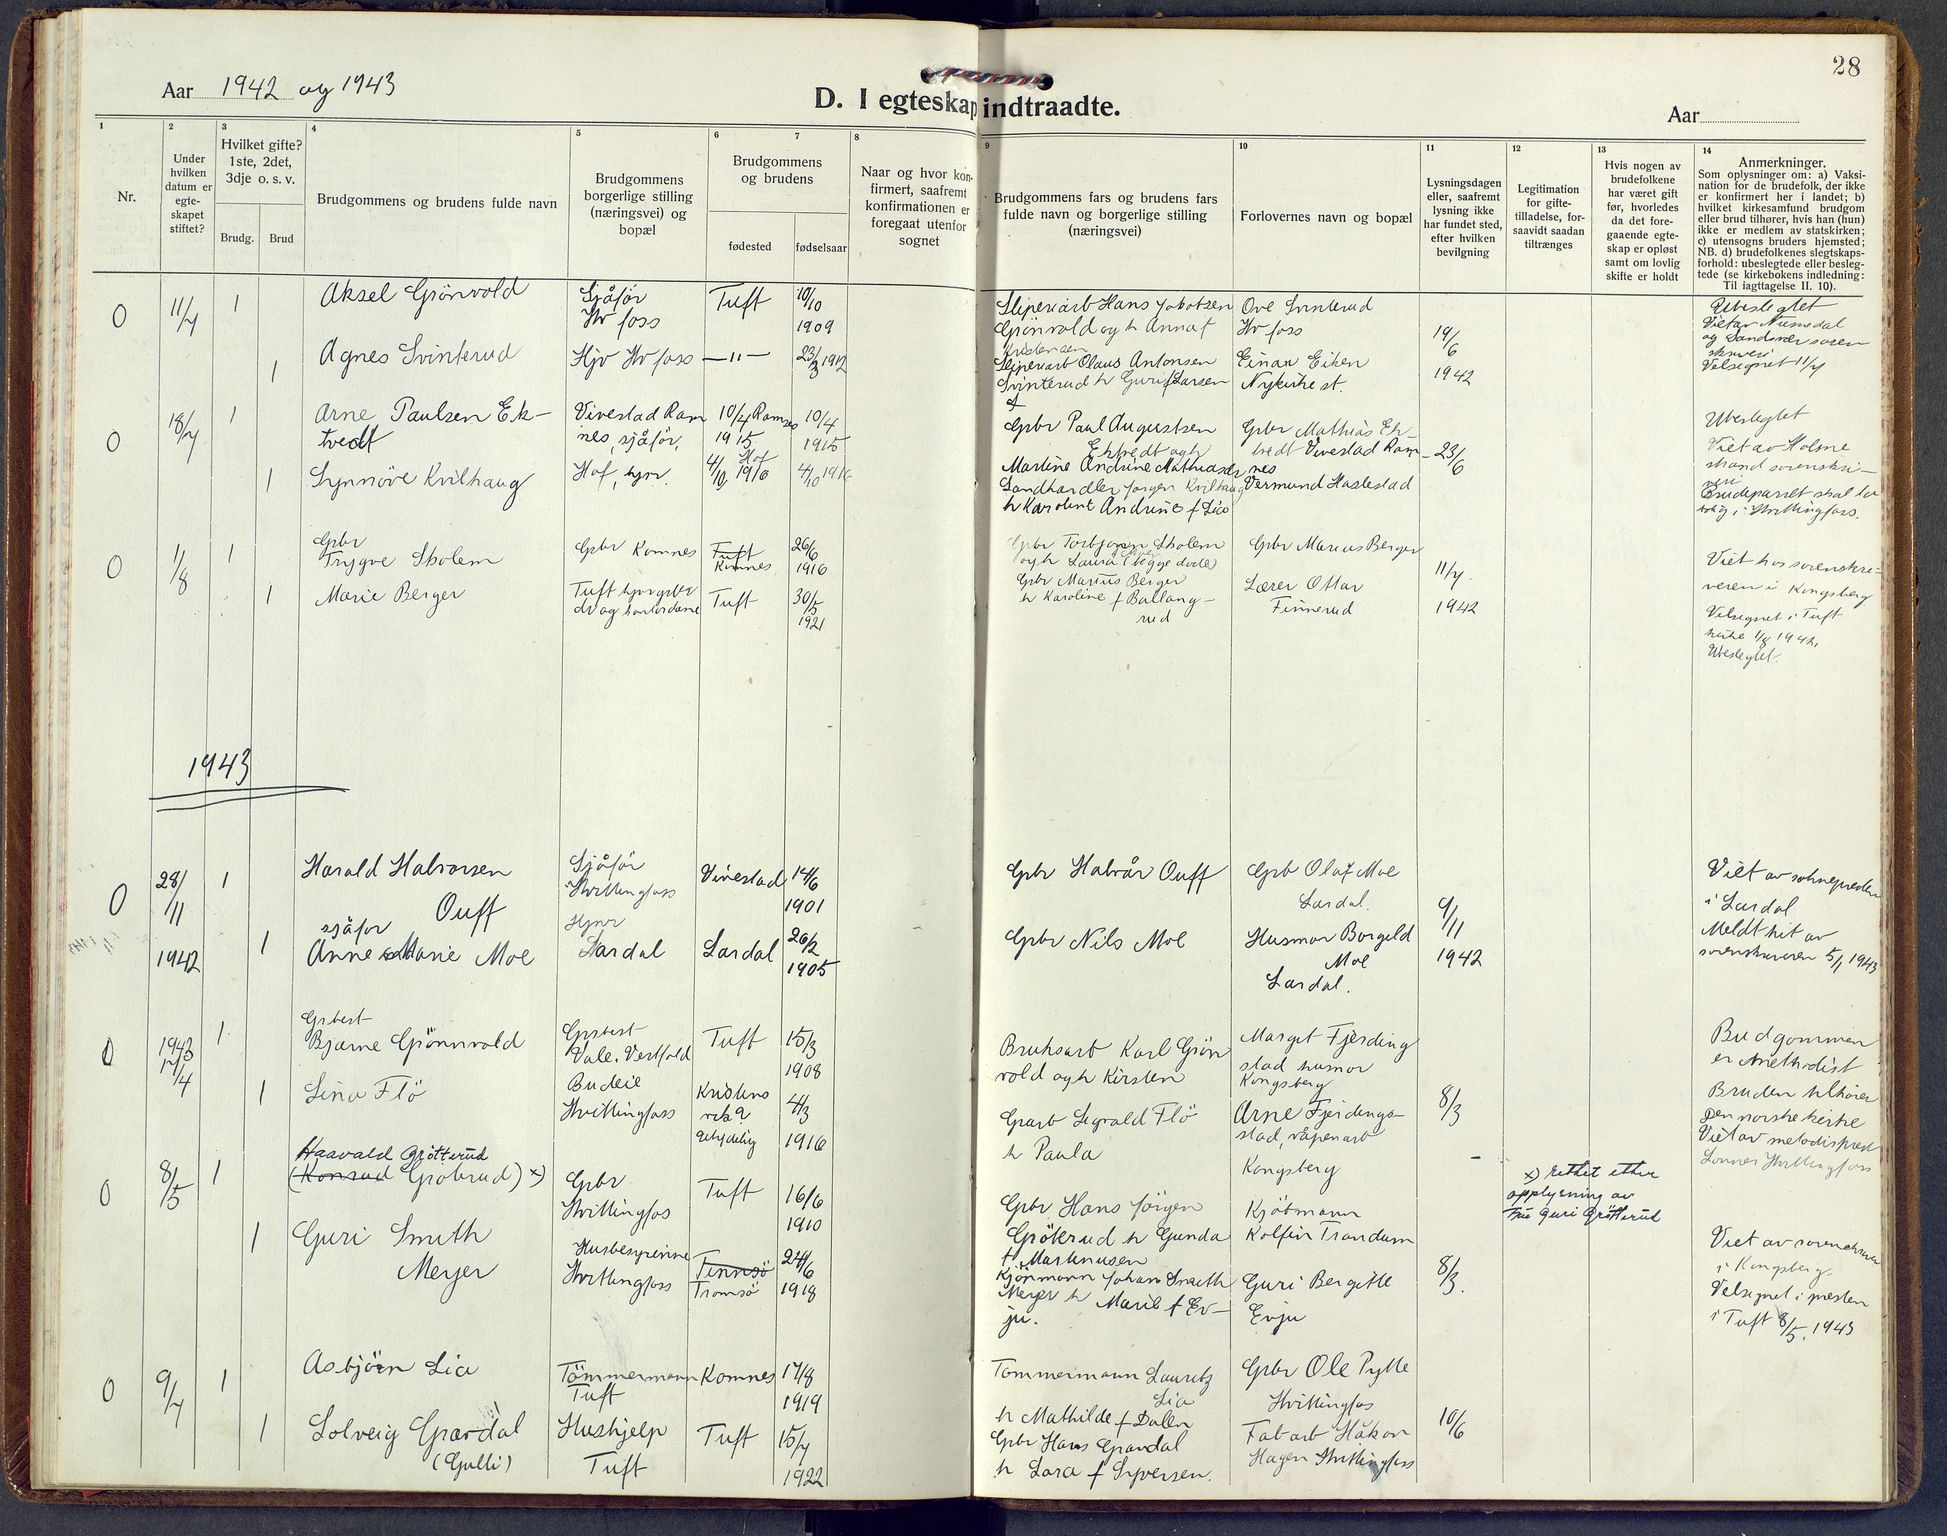 Aar 1942 og 1943
D. I egteskap indtraadte.
Aar
28
1
Nr.
2
Under
hvilken
datum er
egte-
skapet
stiftet?
3
Hvilket gifte?
1ste, 2det,
3dje o. s. v.
Brudg.
Brud
4
Brudgommens og brudens fulde navn
5
Brudgommens
borgerlige stilling
(næringsvei) og
bopæl
6
7
Brudgommens
og brudens
fødested
fødselsaar
8
Naar og hvor kon-
firmert, saafremt
konfirmationen er
foregaat utenfor
sognet
9
Brudgommens fars og brudens fars
fulde navn og borgerlige stilling
(næringsvei)
10
Forlovernes navn og bopæl
11
Lysningsdagen
eller, saafremt
lysning ikke
har fundet sted,
efter hvilken
bevilgning
12
Legitimation
for gifte-
tilladelse, for-
saavidt saadan
tiltrænges
13
Hvis nogen av
brudefolkene
har været gift
før, hvorledes
da det fore-
gaaende egte-
skap er opløst
samt om lovlig
skifte er holdt
14
Anmerkninger.
Som oplysninger om: a) Vaksi-
nation for de brudefolk, der ikke
er konfirmert her i landet; b)
hvilket kirkesamfund brudgom
eller brud tilhører, hvis han (hun)
ikke er medlem av statskirken;
c) utensogns bruders hjemsted;
NB. d) brudefolkenes slegtskaps-
forhold: ubeslegtede eller besleg-
tede (se kirkebokens indledning:
Til iagttagelse II. 10).
0
11/7
1
Aksel Grönvold
Sjåför
Hv foss
Tuft
10/10
1909
Sliperiarb Hans Jakobsen
Grönvold og h Anna f
Kristensen
Ove Svinterud
Hv foss
19/6
1942
Ubeslegtet
Viet av Numedal
og Sandsvær soren
skriveri
Velsignet 11/7
1
Agnes Svinterud
Hjv Hv foss
—"—
23/3 1912
Sliperiarb Olaus Antonsen
Svinterud h Guri f Larsen
Einar Eiken
Nykirke st.
0
18/7
1
Arne Paulsen Ek-
tvedt
Vivestad Ram
nes, sjåför,
10/4 Ramnes
1915
10/4
1915
Gpbr Paul Augustsen
Ektvedt og h
Martine Andrine Mathiasdr
Gpbr Mathias Ek-
tvedt Vivestad Ram-
nes
23/6
Ubeslegtet
Viet av Holme
strand sorenskri-
veri
Brudeparret skal bo
i Hvittingfoss.
1
Synnöve Kvilhaug
Hof, hjv.
4/10 1916 Hof
4/10 1916
Landhandler Jörgen Kvilhaug
h Karoline Andrine f Lia
Vermund Haslestad
0
1/8
1
Gpbr
Trygve Skolem
Gpbr Komnes
Tuft
Komnes
26/6
1916
Gpbr Torbjörn Skolem
og h Laura (begge döde)
Gpbr Marius Berger
11/7
1942
Viet hos sorenskri-
veren i Kongsberg
Velsignet i Tuft
kirke 1/8 1942.
Ubeslegtet.
1
Marie Berger
Tuft hjv gpbr
dr og kontordame
Tuft
30/5
1921
Gpbr Marius Berger
h Karoline f Ballang-
rud
Lærer Ottar
Finnerud
1943
0
28/11
1942
1
Harald Halvorsen
Ouff
sjåför
Sjåför
Hvittingfoss
Vivestad
14/6
1901
Gpbr Halvår Ouff
Gpb Olaf Moe
Lardal.
9/11
1942
Viet av sognepresten
i Lardal
Meldt hit av
sorenskriveren 5/1 1943
1
Anne Marie Moe
Hjvr
Lardal
Lardal
26/2
1905
Gpbr Nils Moe
Husmor Borgeld
Moe
Lardal.
0
1943
17/4
1
Gpbest
Bjarne Grönnvold
Gpbest
Vale. Vestfold
Tuft
15/3
1908
Bruksarb Karl Grön
vold og h Kirsten
Marget Fjerding
stad husmor
Kongsberg
8/3
Budgommen
er Methodist
Bruden tilhörer
Den norske kirke
Viet av metodisprest
Lonnes Hvittingfoss
1
Lina Flö
Budeie
Hvittingfoss
4/3
1916
Gparb Sigvald Flö
h Paula
Arne Fjerdings-
stad, våpenarb
Kongsberg
0
8/5
1
Haavald Gröttrud
(Konrud Gröterud) x)
Gpbr
Hvittingfos
Tuft
16/6
1910
Gpbr Hans Jörgen
Gröterud h Gunda
f Martinusen
Kjöbmann
Kolfin Trandum
8/3.
x) Rettet etter
opplysning av
Fru Guri Gröttrud
Viet av sorenskriver
i Kongsberg.
Velsignet i presten
i Tuft 8/5. 1943
1
Guri Smith
Meyer
Husbestyrerinne
Hvittingfoss
Tennsö
Tromsö
24/6
1918
Kjöpmann Johan Smith
Meyer h Marie f Ev-
ju.
Guri Bergitte
Evju
0
9/7
1
Asbjörn Lia
Tömmermann
Tuft
Komnes
17/8
1919
Tömmermann Lauritz
Lia
h Mathilde f Dalen
Gpbr Ole Pytte
Hvittingfos
10/6
1
Solveig Gpardal
(Gulli)
Hushjelp
Tuft
Tuft
15/7
1922
Gpbr Hans Gpardal
h Lara f Syversen.
Fabarb Håkon
Hagen Hvittingfoss